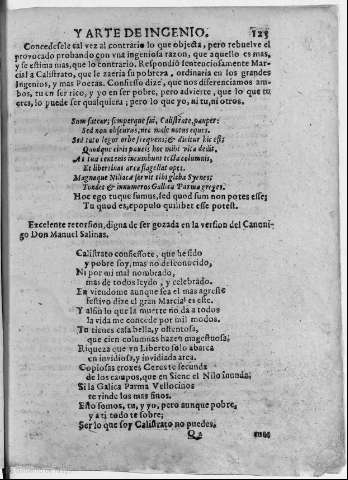 Y ARTE DE INGENIO. 125
Concedesele tal vez al contrario lo que objecta, pero rebuelve el
provocado probando con vna ingeniosa razon, que aquello es mas,
y se estima mas, que lo contrario. Respondiò sentenciosamente Mar-
cial a Calistrato, que le zaeria su pobreza, ordinaria en los grandes
Ingenios, y mas Poetas. Confiesso dize, que nos diferenciamos am-
bos, tu en ser rico, y yo en ser pobre, pero advierte, que lo que tu
eres, lo puede ser qualquiera; pero lo que yo, ni tu, ni otros.
Sum fateor, semperque fui, Calistrate, pauper:
Sed non obscurus, nec male notus eques.
Sed toto legor orbe frequens, & dicitur hic est;
Quodque cinis paucis hoc mihi vita dedit.
At tua centenis incumbunt tecta columnis,
Et libertinas arca flagellat opes.
Magnaque Niliacæ servit tibi gleba Syenes;
Tondet & innumeros Gallica Parma greges.
Hoc ego tuque sumus, sed quod sum non potes esse;
Tu quod es, e populo quilibet esse potest.
Excelente retorsion, digna de ser gozada en la version del Canoni-
go Don Manuel Salinas.
Calistrato confiessote, que he sido
y pobre soy, mas no desconocido,
Ni por mi mal nombrado,
mas de todos leydo, y celebrado.
En viendome aunque sea el mas agreste
festivo dize el gran Marcial es este.
Y assi lo que la muerte no da a todos
la vida me concede por mil modos.
Tu tienes casa bella, y ostentosa,
que cien columnas hazen magestuosa;
Riqueza que vn Liberto solo abarca
en invidiosa, y invidiada arca.
Copiosas troxes Ceres te secunda
de los campos, que en Siene el Nilo inunda;
Si la Galica Parma Vellocinos
te rinde los mas finos.
Esto somos, tu, y yo, pero aunque pobre,
y a ti todo te sobre;
Ser lo que soy Calistrato no puedes,
Q